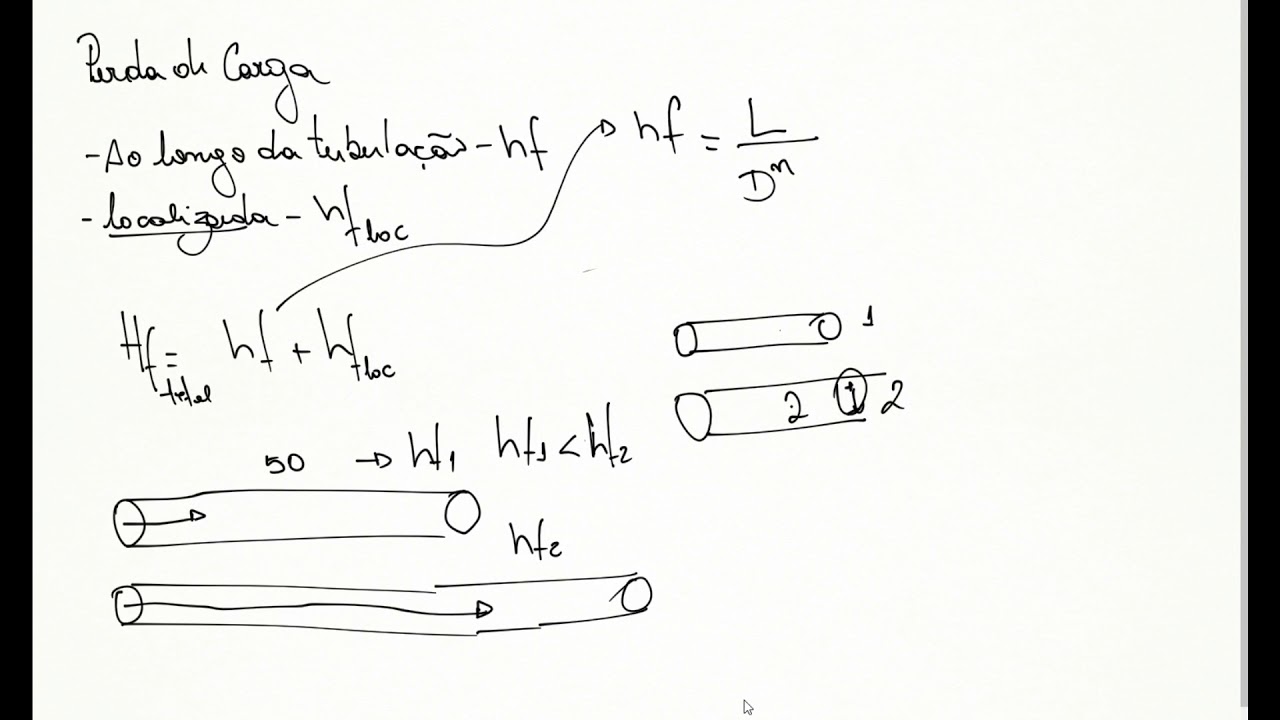 Perda de Carga
- Ao longo da tubulação - hf
- localizada - hf loc
hf = L / D^n
Hf total = hf + hf loc
1
2 1 2
50 → hf1 hf1 < hf2
hf2